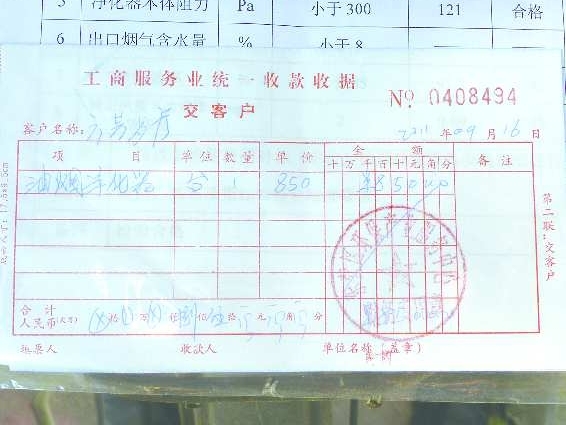 5 净化器本体阻力 Pa 小于300 121 合格
6 出口烟气含水量 % 小于8
工商服务业统一收款收据
No 0408494
交客户
客户名称:
2011年09月16日
项目 单位 数量 单价 金额 备注
十 万 千 百 十 元 角 分
油烟净化器 台 1 850 ¥85000
第二联:交客户
合计
人民币(大写) 拾 万 仟 捌佰伍拾 元 角 分
收款人 单位名称(盖章)